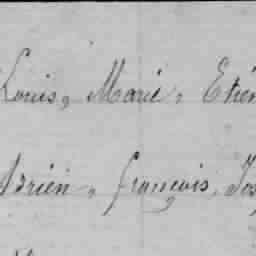 Louis, Marie, Etien
Adrien, françois, Jos